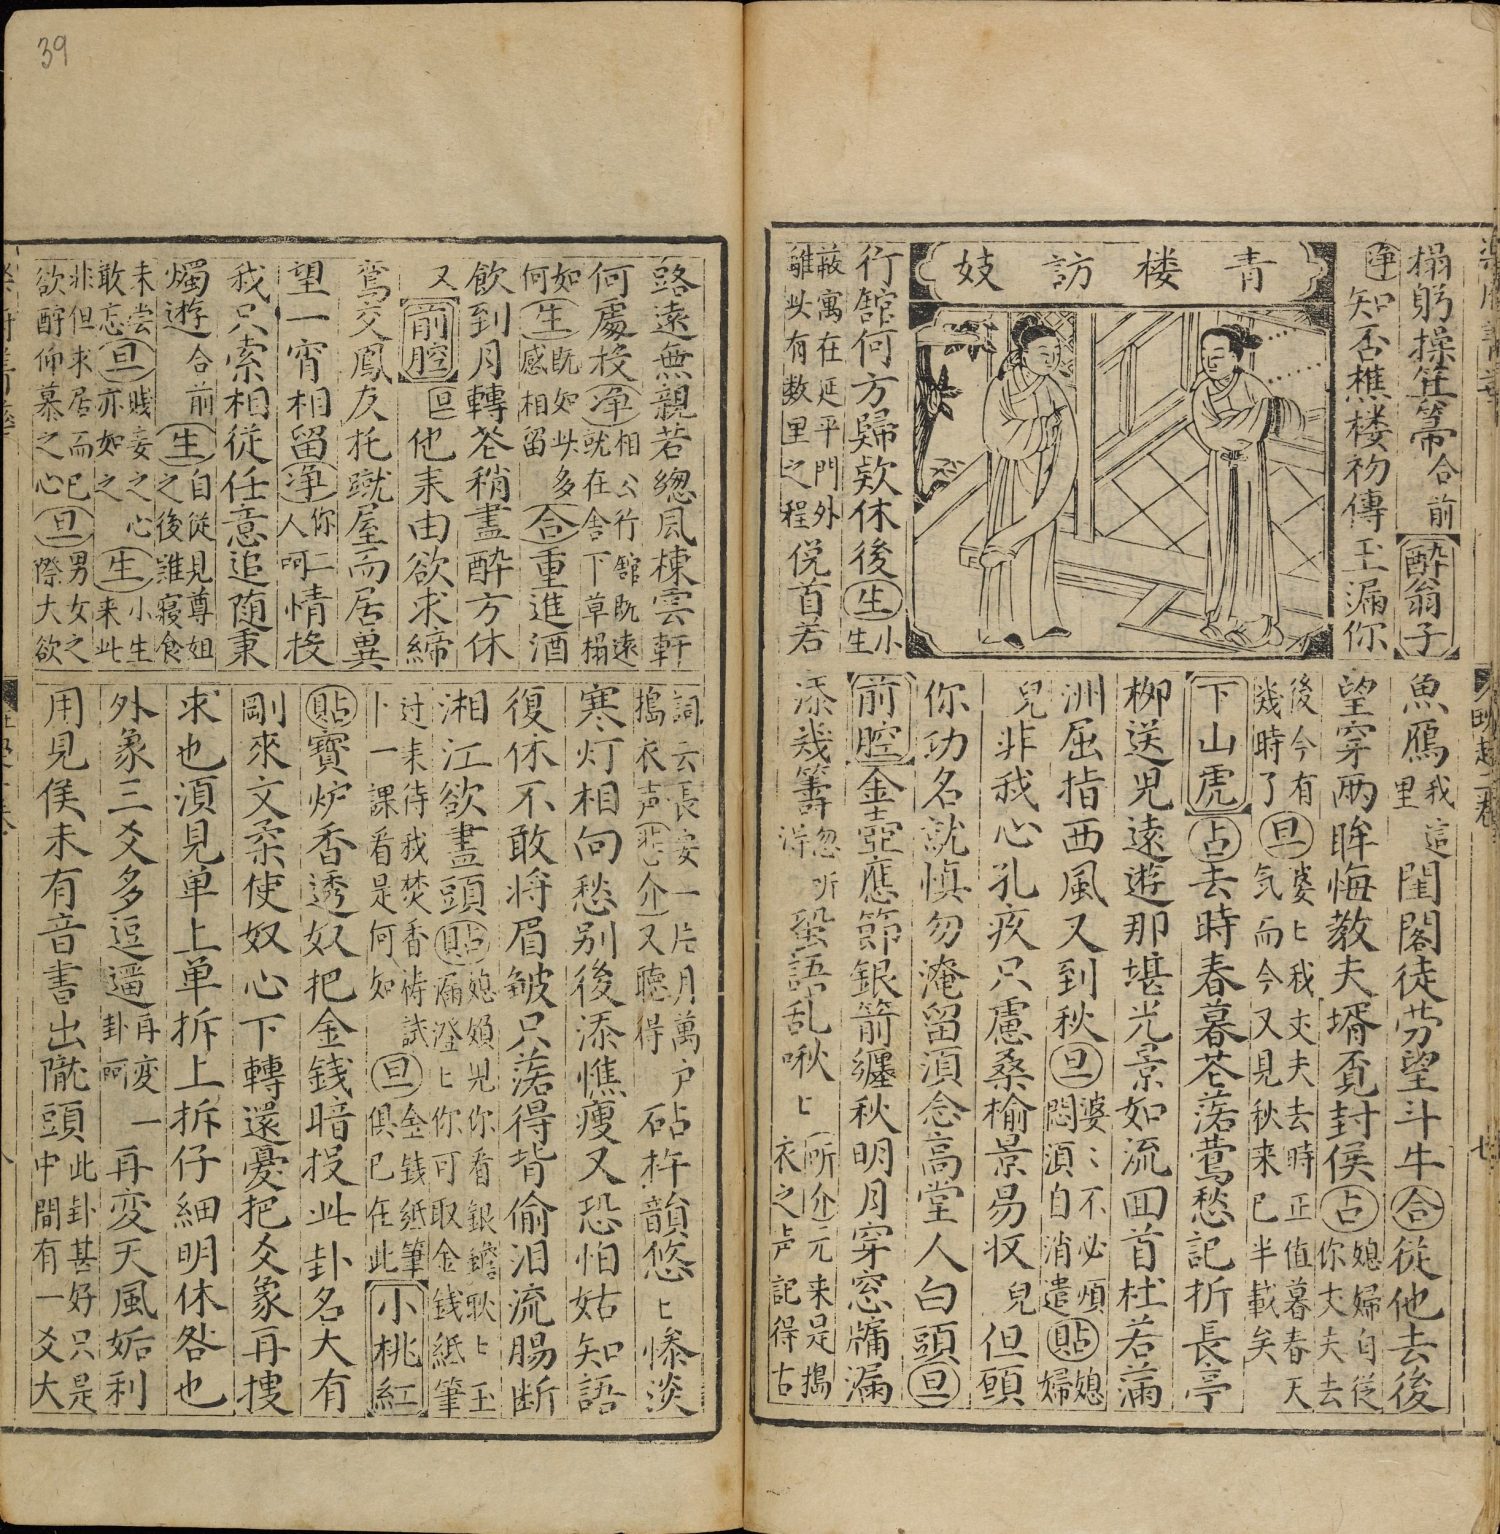 39
榻躬操笠箒合前醉翁子
淨知否樵楼初傳玉漏你
青楼訪妓
行舘何方歸欵休後生小生
蔽寓在延平門外
離此有数里之程
倪首若
魚鴈我這里閨閣徒劳望斗牛合從他去後
望穿兩眸悔教夫壻覓封侯占媳婦自從你丈夫去
後今有幾時了旦婆匕我丈夫去時正值暮春天
气而今又見秋来已半載矣
下山虎占去時春暮花落鶯愁記折長亭
柳送児遠遊那堪光景如流囬首杜若滿
洲屈指西風又到秋旦婆〻不必煩悶須自消遣貼媳婦
兒非我心孔疚只慮桑榆景易収兒但願
你功名就慎勿淹留須念高堂人白頭旦
前腔金壺應節銀箭纏秋明月穿窓牖漏
添幾籌忽听得蛩語乱啾匕所介元来是搗衣之声記得古
路遠無親若總風棟雲軒
何處投淨相公行舘既遠
就在舍下草榻
如何生既如此多感相留合重進酒
飲到月轉花稍盡醉方休
又前腔旦他来由欲求締
鸞交鳳友托蹴屋而居異
望一宵相留淨你二人呵情投
我只索相從任意追随秉
燭遊合前生自從見尊姐之後雖寢食
未尝敢忘旦賎妾之心亦如之生小生来此
非但求居而已欲酧仰慕之心旦男女之際大欲
詞云長安一片月萬户搗衣声悲介又聽得砧杵韻悠匕惨淡
寒灯相向愁别後添憔瘦又恐怕姑知語
復休不敢将眉皱只落得背偷泪流腸断
湘江欲盡頭貼媳婦児你看銀蟾耿匕玉漏澄匕你可取金錢紙筆
过来待我焚香祷試卜一課看是何如旦金錢紙筆俱已在此小桃紅
貼寶炉香透奴把金錢暗投此卦名大有
剛來文柔使奴心下轉還憂把爻象再摟
求也須見单上单拆上拆仔細明休咎也
外象三爻多逗遛再変一卦呵再変天風姤利
用見侯未有音書出隴頭此卦甚好只是中間有一爻大